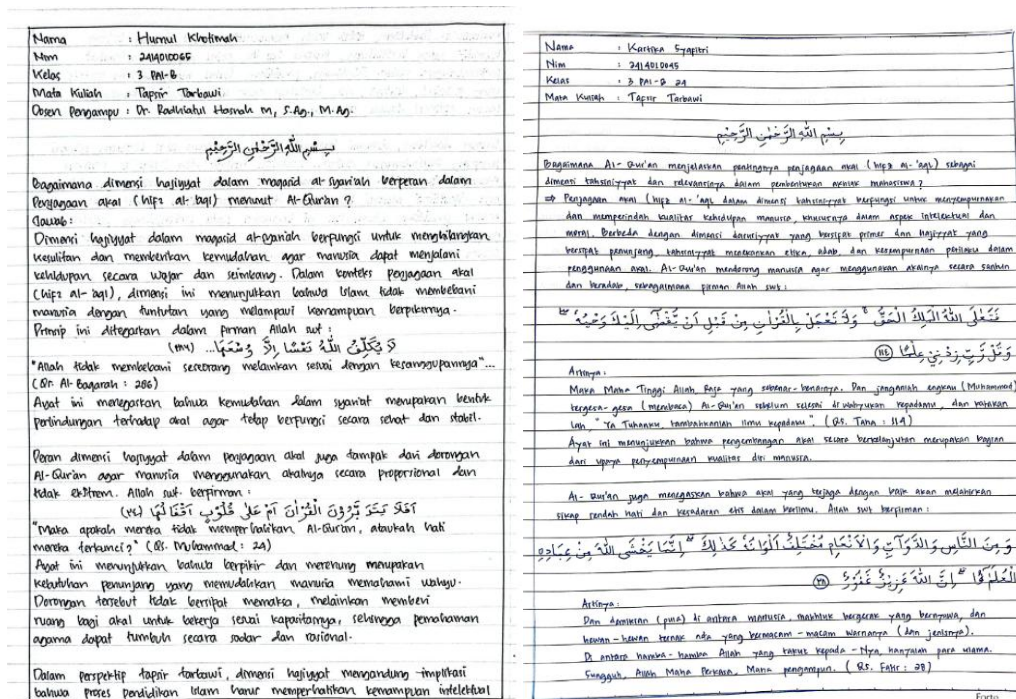 Nama : Husnul Khotimah
Nim : 2414010065
Kelas : 3 PAI-B
Mata Kuliah : Tapsir Tarbawi
Dosen Pengampu : Dr. Radhiatul Hasnah M, S.Ag., M.Ag.
بِسْمِ اللَّهِ الرَّحْمَٰنِ الرَّحِيمِ
Bagaimana dimensi hajiyyat dalam maqasid al-syari'ah berperan dalam
Penjagaan akal (hifz al-'aql) menurut Al-Qur'an ?
Jawab :
Dimensi hajiyyat dalam maqasid al-syari'ah berfungsi untuk menghilangkan
kesulitan dan memberikan kemudahan agar manusia dapat menjalani
kehidupan secara wajar dan seimbang. Dalam konteks penjagaan akal
(hifz al-'aql), dimensi ini menunjukkan bahwa Islam tidak membebani
manusia dengan tuntutan yang melampaui kemampuan berpikirnya.
Prinsip ini ditegaskan dalam firman Allah swt :
لَا يُكَلِّفُ اللَّهُ نَفْسًا إِلَّا وُسْعَهَا... (٢٨٦)
"Allah tidak membebani seseorang melainkan sesuai dengan kesanggupannya"...
(Qs. Al-Baqarah : 286)
Ayat ini menegaskan bahwa kemudahan dalam syariat merupakan bentuk
perlindungan terhadap akal agar tetap berfungsi secara sehat dan stabil.
Peran dimensi hajiyyat dalam penjagaan akal juga tampak dari dorongan
Al-Qur'an agar manusia menggunakan akalnya secara proporsional dan
tidak ekstrem. Allah swt. berfirman :
اَفَلَا يَتَدَبَّرُوْنَ الْقُرْاٰنَ اَمْ عَلٰى قُلُوْبٍ اَقْفَالُهَا (٢٤)
"Maka apakah mereka tidak memperhatikan Al-Qur'an, ataukah hati
mereka terkunci?" (Qs. Muhammad : 24)
Ayat ini menunjukkan bahwa berpikir dan merenung merupakan
kebutuhan penunjang yang memudahkan manusia memahami wahyu.
Dorongan tersebut tidak bersifat memaksa, melainkan memberi
ruang bagi akal untuk bekerja sesuai kapasitasnya, sehingga pemahaman
agama dapat tumbuh secara sadar dan rasional.
Dalam perspektip tapsir tarbawi, dimensi hajiyyat mengandung implikasi
bahwa proses pendidikan Islam harus memperhatikan kemampuan intelektual
Nama : Kartika Syafitri
Nim : 2414010045
Kelas : 3 PAI-B 24
Mata Kuliah : Tapsir Tarbawi
بِسْمِ اللَّهِ الرَّحْمَٰنِ الرَّحِيمِ
Bagaimana Al-Qur'an menjelaskan pentingnya penjagaan akal (hifz al-'aql) sebagai
dimensi tahsiniyyat dan relevansinya dalam pembentukan akhlak mahasiswa ?
⇒ Penjagaan akal (hifz al-'aql) dalam dimensi tahsiniyyat berfungsi untuk menyempurnakan
dan memperindah kualitas kehidupan manusia, khususnya dalam aspek intelektual dan
moral. Berbeda dengan dimensi daruriyyat yang bersipat primer dan hajiyyat yang
bersipat penunjang, tahsiniyyat menekankan etika, adab, dan kesempurnaan perilaku dalam
penggunaan akal. Al-Qur'an mendorong manusia agar menggunakan akalnya secara santun
dan beradab, sebagaimana firman Allah swt :
فَتَعٰلَى اللّٰهُ الْمَلِكُ الْحَقُّ ۚ وَلَا تَعْجَلْ بِالْقُرْاٰنِ مِنْ قَبْلِ اَنْ يُّقْضٰٓى اِلَيْكَ وَحْيُهٗ ۖ
وَقُلْ رَّبِّ زِدْنِيْ عِلْمًا ١١٤
Artinya :
Maka Maha Tinggi Allah, Raja yang sebenar-benarnya. Dan janganlah engkau (Muhammad)
tergesa-gesa (membaca) Al-Qur'an sebelum selesai diwahyukan kepadamu, dan katakan
lah, "Ya Tuhanku, tambahkanlah ilmu kepadaku". (Qs. Taha : 114)
Ayat ini menunjukkan bahwa pengembangan akal secara berkelanjutan merupakan bagian
dari upaya penyempurnaan kualitas diri manusia.
Al-Qur'an juga menegaskan bahwa akal yang terjaga dengan baik akan melahirkan
sikap rendah hati dan kesadaran etis dalam berilmu. Allah swt berfirman :
وَمِنَ النَّاسِ وَالدَّوَاۤبِّ وَالْاَنْعَامِ مُخْتَلِفٌ اَلْوَانُهٗ كَذٰلِكَ ۗ اِنَّمَا يَخْشَى اللّٰهَ مِنْ عِبَادِهِ
الْعُلَمٰۤؤُا ۗ اِنَّ اللّٰهَ عَزِيْزٌ غَفُوْرٌ ٢٨
Artinya :
Dan demikian (pula) di antara manusia, makhluk bergerak yang bernyawa, dan
hewan-hewan ternak ada yang bermacam-macam warnanya (dan jenisnya).
Di antara hamba-hamba Allah yang takut kepada-Nya, hanyalah para ulama.
Sungguh, Allah Maha Perkasa, Maha pengampun. (Qs. Fatir : 28)
Forte